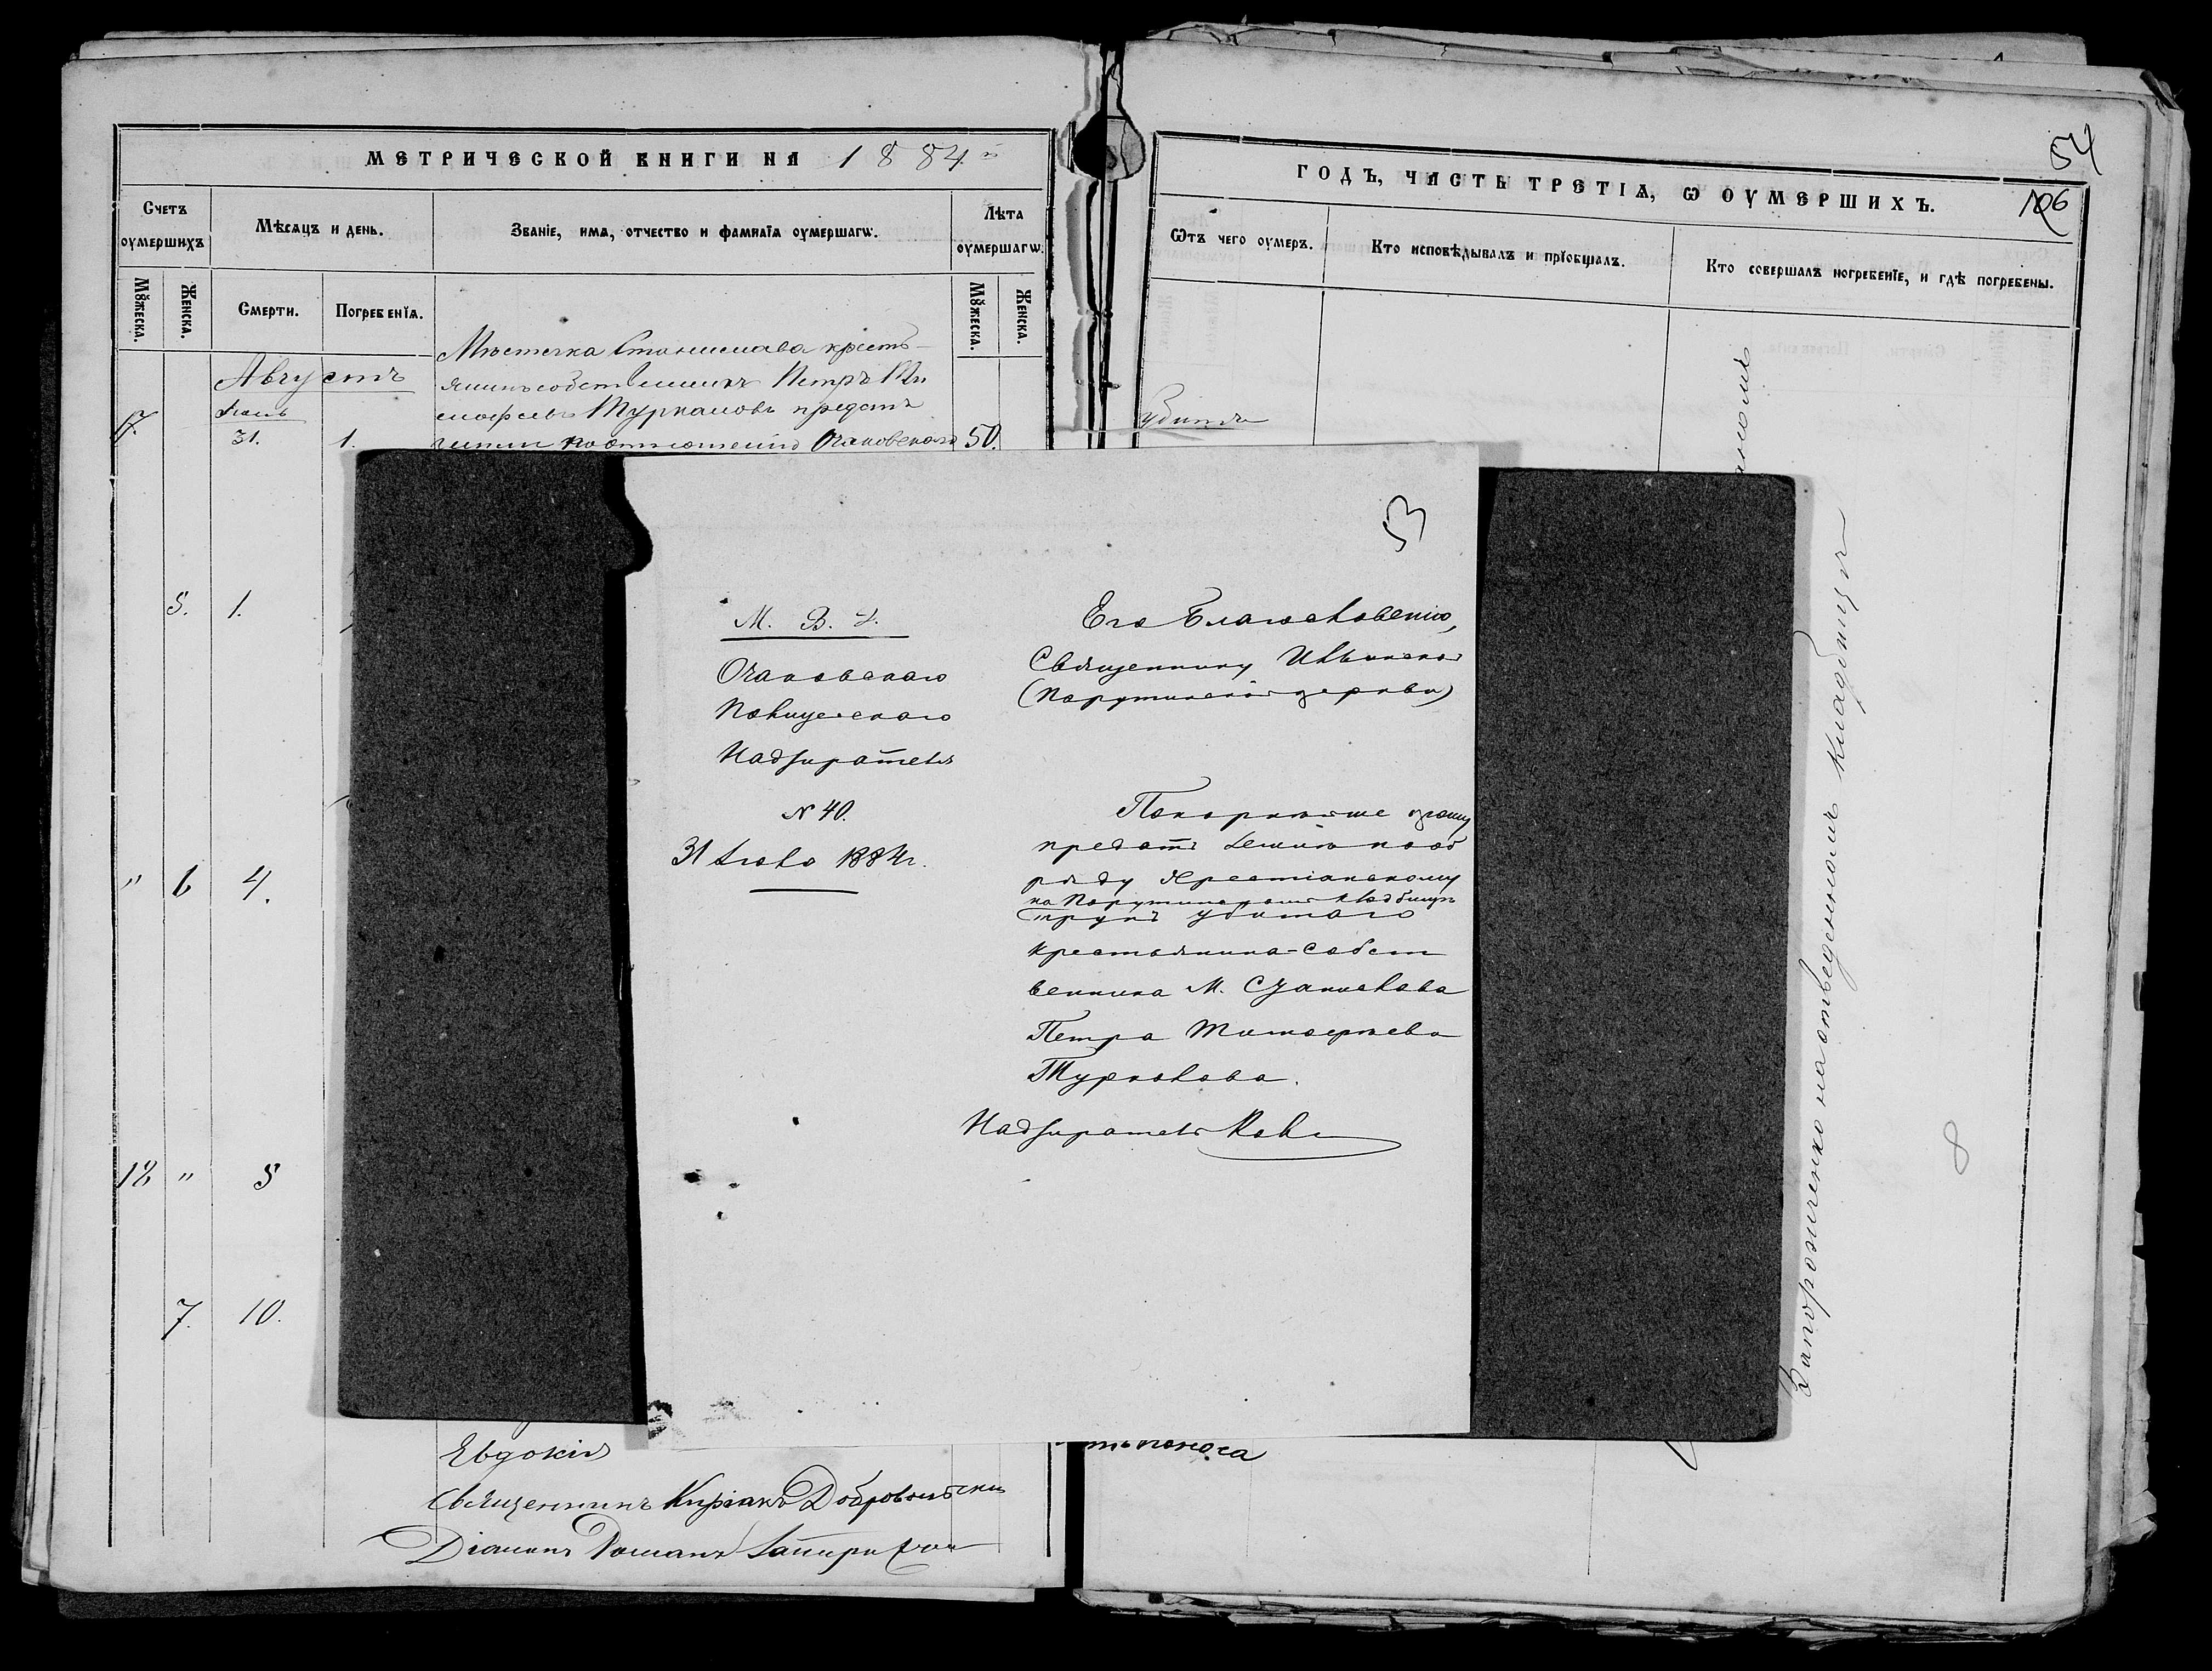 МЕТРИЧЕСКОЙ КНИГИ НА 1884й
Счетъ оумершихъ
Мѣсяцъ и день.
Званіе, имя, отчество и фамилія оумершагѡ.
Лѣта оумершагѡ.
Мꙋжеска.
Женска.
Смерти.
Погребенїя.
Мꙋжеска.
Женска.
Августъ
Мѣстечка Станислава кресть-
янинъ собственникъ Петръ Ти
мофеевъ Туркаловъ
17.
31.
1.
по отношенію Очаковскаго
50.
5.
1.
"
6
4.
18
"
5
7.
10.
Евдокія
Священникъ Киріакъ Добровольскій
Діаконъ Романъ
54
106
ГОДЪ, ЧАСТЬ ТРЕТІѦ, Ѡ ОУМЕРШИХЪ.
Ѿтъ чего оумеръ.
Кто исповѣдывалъ и прїобщалъ.
Кто совершалъ погребенїе, и гдѣ погребены.
убитъ
на отведенномъ кладбищѣ
8
поноса
53
М. В. Д.
Очаковскаго
Полицейскаго
Надзирателя
N 40.
31 Іюля 1884 г.
Его Благословенію,
Священнику Ильинской
(Парутинской церкви)
Покорнѣйше прошу
предать землѣ по об
ряду Христіанскому
на Парутинскомъ кладбищѣ
трупъ убитаго
крестьянина-собст
венника М. Станислава
Петра Тимофеева
Туркалова.
Надзиратель